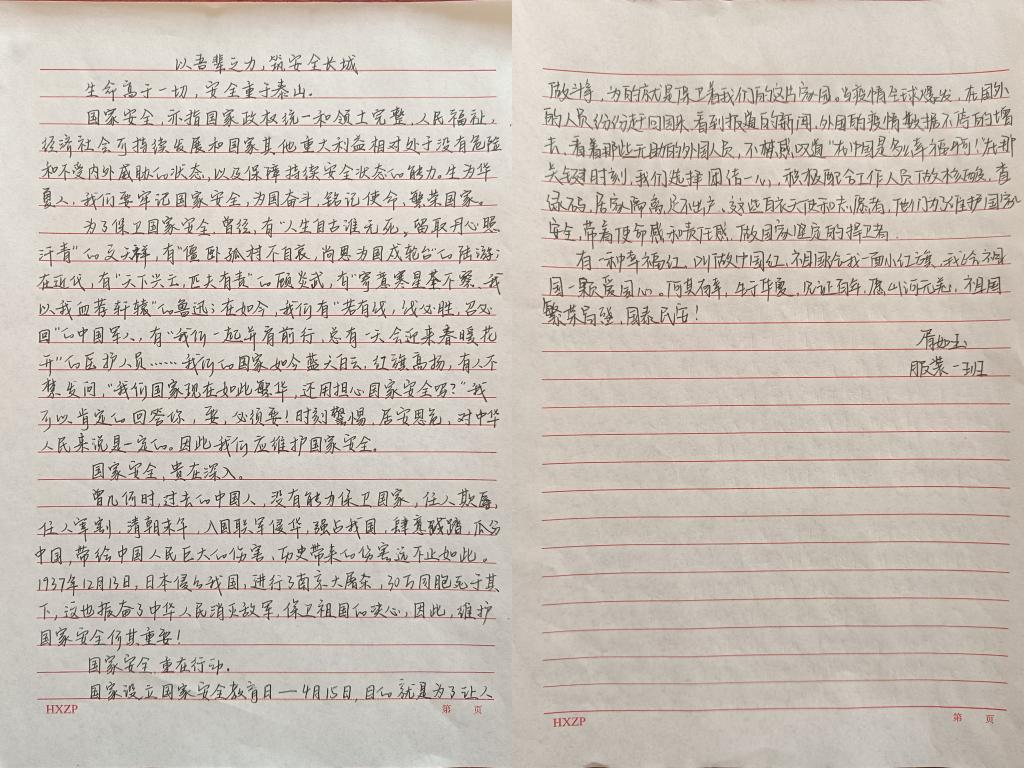 以吾辈之力，筑安全长城
生命高于一切，安全重于泰山.
国家安全，亦指国家政权统一和领土完整，人民福祉，
经济社会可持续发展和国家其他重大利益相对处于没有危险
和不受内外威胁的状态，以及保障持续安全状态的能力。生为华
夏人，我们要牢记国家安全，为国奋斗，铭记使命，繁荣国家。
为了保卫国家安全，曾经，有“人生自古谁无死，留取丹心照
汗青”的文天祥，有“僵卧孤村不自哀，尚思为国戍轮台”的陆游；
在近代，有“天下兴亡，匹夫有责”的顾炎武，有“寄意寒星荃不察，我
以我血荐轩辕”的鲁迅；在如今，我们有“若有战，战必胜，召必
回”的中国军人，有“我们一起并肩前行，总有一天会迎来春暖花
开”的医护人员……我们的国家如今蓝天白云，红旗高扬，有人不
禁发问，“我们国家现在如此繁华，还用担心国家安全吗？”我
可以肯定的回答你，要，必须要！时刻警惕，居安思危，对中华
人民来说是一定的。因此我们应维护国家安全.
国家安全，贵在深入。
曾几何时，过去的中国人，没有能力保卫国家，任人欺辱，
任人宰割，清朝末年，八国联军侵华，强占我国，肆意践踏，瓜分
中国，带给中国人民巨大的伤害，历史带来的伤害远不止如此。
1937年12月13日，日本侵占我国，进行了南京大屠杀，30万同胞死于其
下，这也振奋了中华人民消灭敌军，保卫祖国的决心，因此，维护
国家安全何其重要！
国家安全，重在行动.
国家设立国家安全教育日—4月15日，目的就是为了让人
HXZP 第 页
做斗争，为的就是保卫着我们的这片家园。当疫情全球爆发，在国外
的人员纷纷赶回国来，看到报道的新闻，外国的疫情数据不停的增
长，看着那些无助的外国人员，不禁感叹道“在中国是多么幸福啊！”在那
关键时刻，我们选择团结一心，积极配合工作人员做核酸，查
绿码，居家隔离足不出户、这些白衣天使和志愿者，他们为了维护国家
安全，带着使命感和责任感，做国家坚定的捍卫者.
有一种幸福红，叫做中国红，祖国给我一面小红旗，我给祖
国一颗爱国心。何其有幸，生于华夏，见证百年，愿山河无恙，祖国
繁荣昌盛，国泰民安！
服装一班
HXZP 第 页